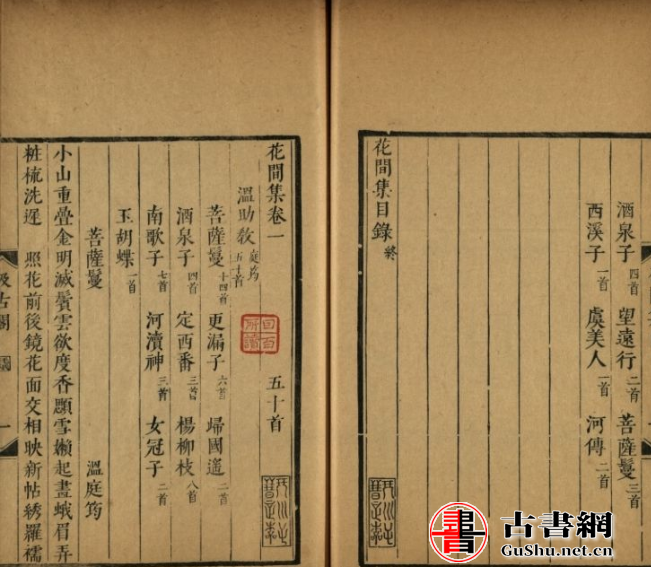 酒泉子四首 望遠行二首 菩薩鬘三首
西溪子一首 虞美人一首 河傳二首
花間集目錄終
花間集卷一 五十首
溫助教庭筠五十首
菩薩鬘十四首 更漏子六首 歸國遙二首
酒泉子四首 定西番三首 楊柳枝八首
南歌子七首 河瀆神三首 女冠子二首
玉胡蝶一首
菩薩鬘 溫庭筠
小山重疊金明滅鬢雲欲度香顋雪嬾起畫蛾眉弄
粧梳洗遲 照花前後鏡花面交相映新帖綉羅襦
汲古閣
一
古書網
GuShu.net.cn
書